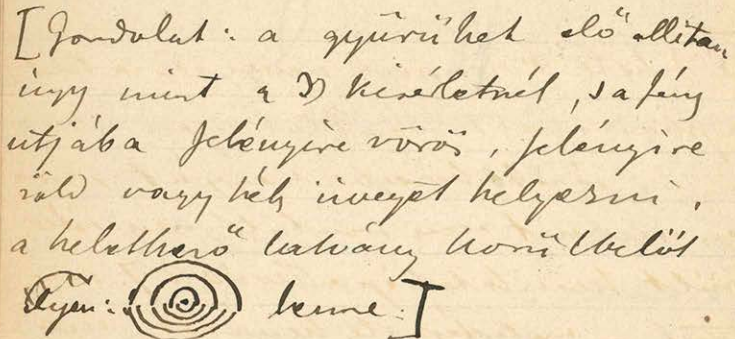 [Gondolat: a gyűrűket elő állitan
úgy mint a 3) kisérletnél, s a fény
utjába felényire vörös, felényire
zöld vagy kék üveget helyezni,
a keletkező látvány körülbelöl
ilyen: lenne.]